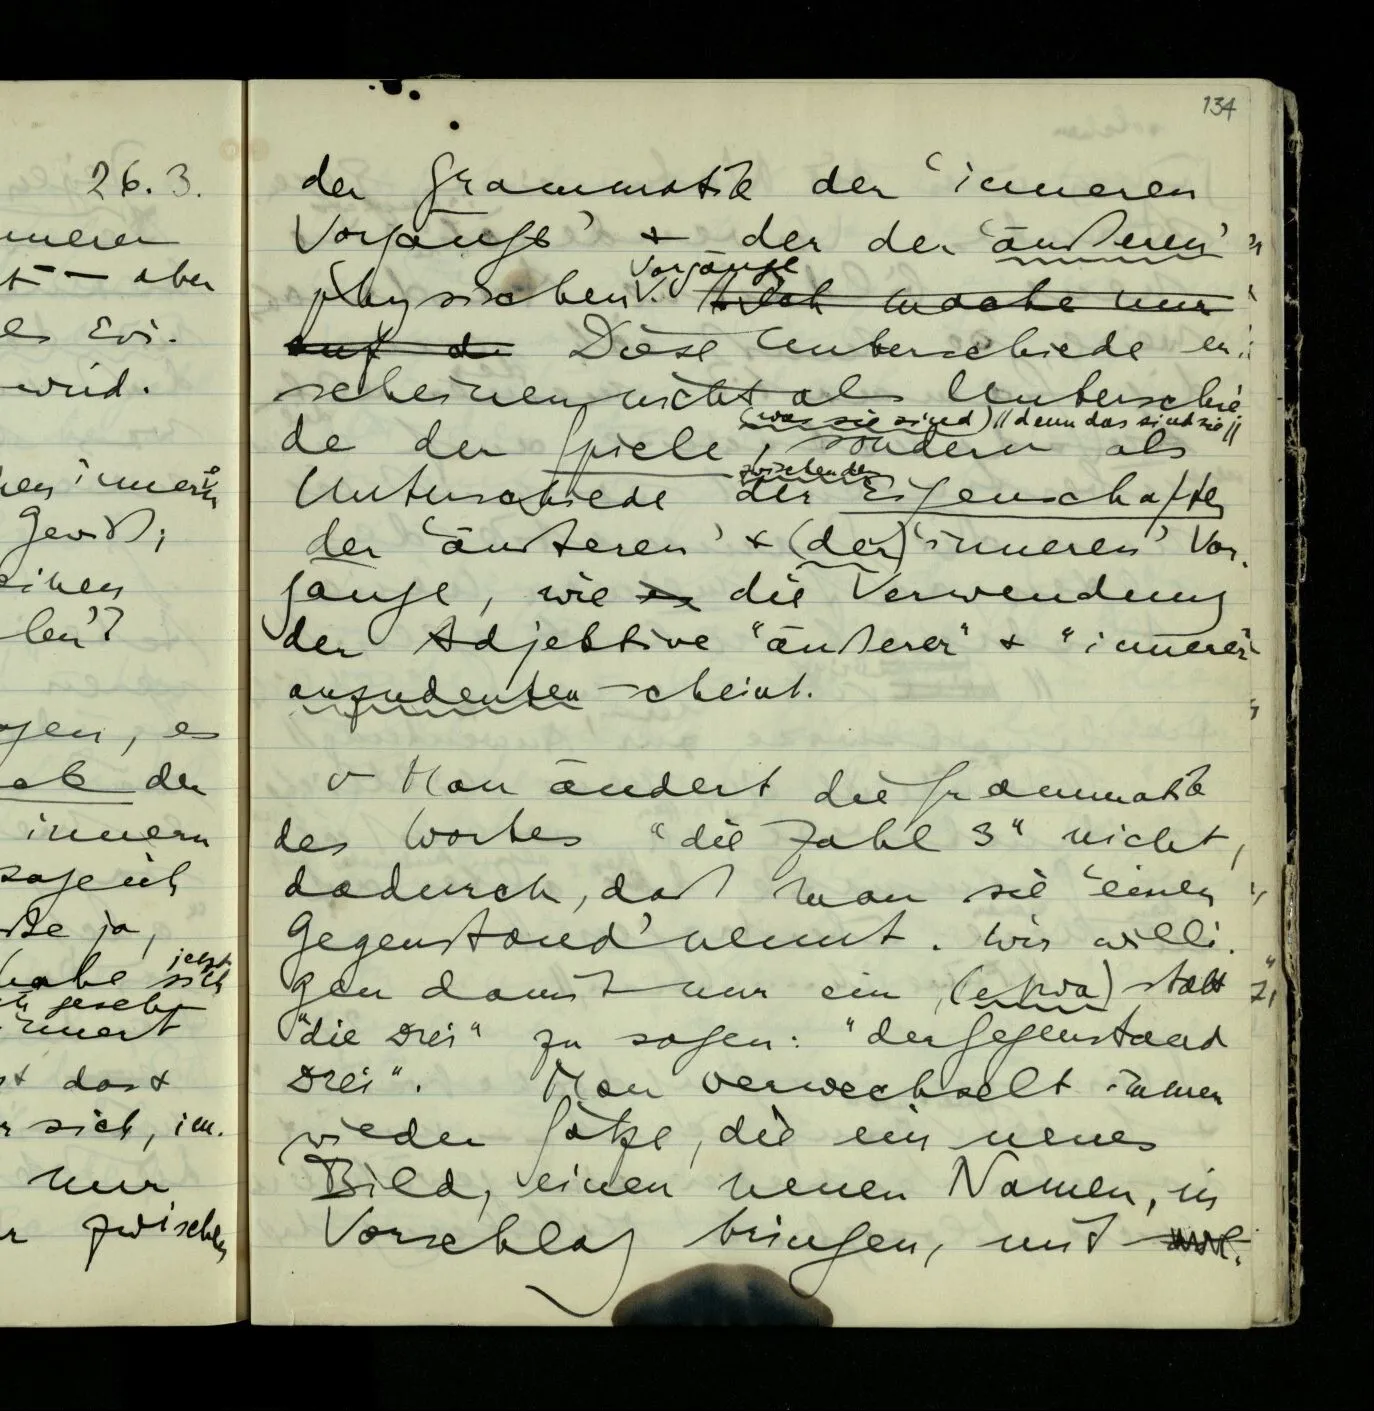 26.3.
aber
es Evi-
wird.
Gewiß;
einen
len'?
gen, es
der
innern
sage ich
ja,
jetzt
habe sich
gesehen
st das &
r sich, im-
nur
r zwischen
134
der Grammatik der 'inneren
Vorgänge' & der der 'äußeren'
Vorgänge
physischen V. Ich mache nur
auf di Diese Unterschiede er-
scheinen nicht als Unterschie-
(was sie sind) // denn das sind sie //
de der Spiele, sondern als
zwischen den
Unterschiede der Eigenschaften
der 'äußeren' & (der) 'inneren' Vor-
gänge, wie es die Verwendung
der Adjektive "äußerer" & "innerer"
anzudeuten scheint.
v Man ändert die Grammatik
des Wortes "die Zahl 3" nicht,
dadurch, daß man sie 'einen
Gegenstand' nennt. Wir willi-
gen damit nur ein, (etwa) statt
"die Drei" zu sagen: "der Gegenstand
Drei". Man verwechselt immer
wieder Sätze, die ein neues
Bild, einen neuen Namen, in
Vorschlag bringen, mit